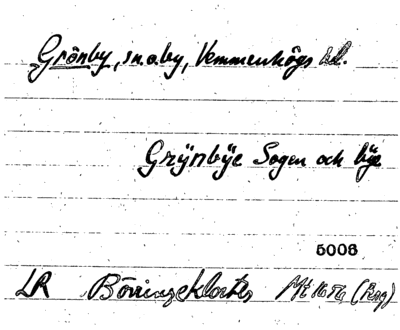 Grönby, sn.o.by, Vemmenhögs hd.
Grÿnbÿe Sogen och bÿe
5006
LR Börringekloster Mt 1656 (Reg)